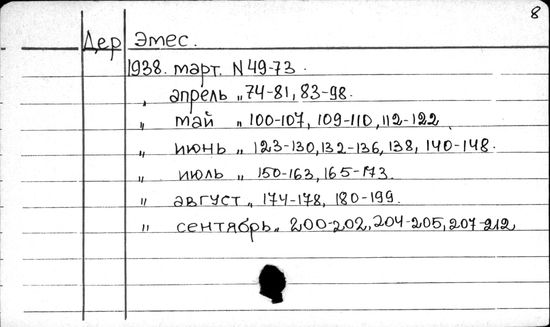 8
Дер Эмес.
1938. март. N 49-73.
„ апрель „ 74-81, 83-98.
„ май „ 100-107, 109-110, 112-122
„ июнь „ 123-130, 132-136, 138, 140-148.
„ июль „ 150-163, 165-173.
„ август „ 174-178, 180-199.
„ сентябрь „ 200-202, 204-205, 207-212